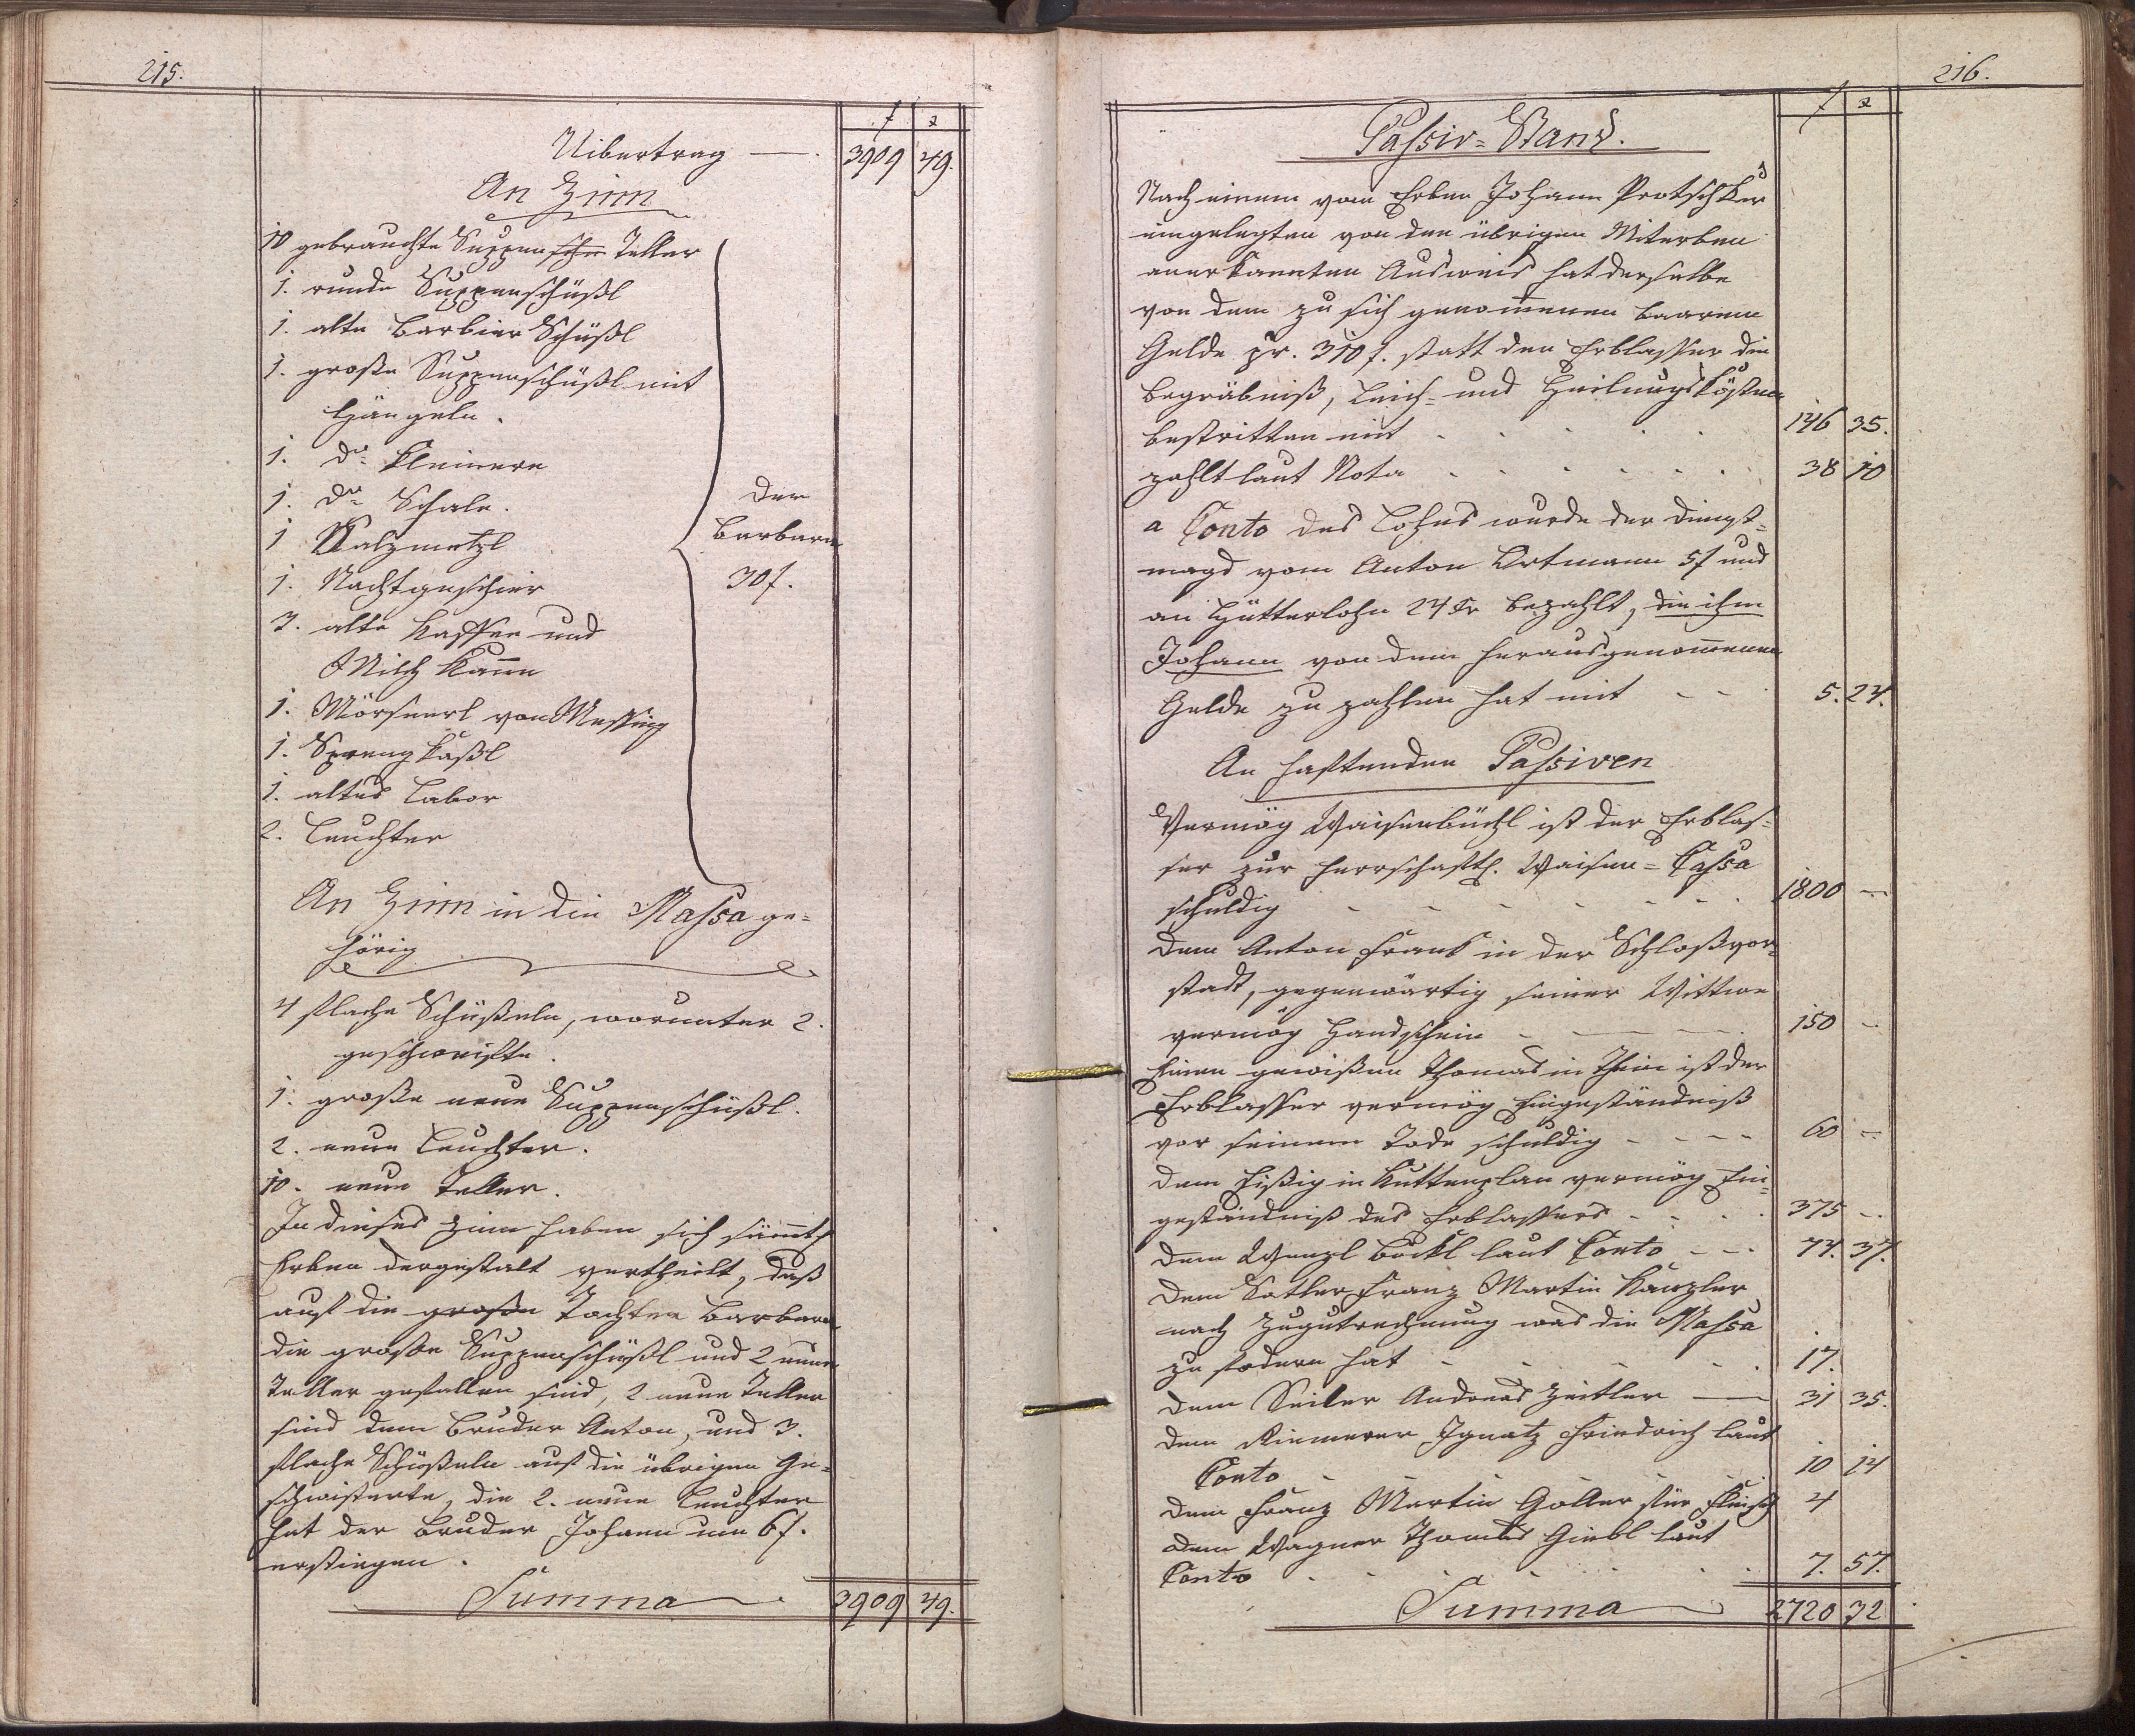 215.
f x
Uibertrag —. 3909 49.
An Zinn
10 gebrauchte Suppen Teller
1. runde Suppenschüßl
1. alte Barbier Schüßl
1. große Suppenschüßl mit
Hängeln.
1. do kleinere
1. do Schale. der
1 Salzmetzl Barbara
1. Nachtgeschier 30 f.
3. alte Kaffee und
Milch Kan̄e
1. Mörserl von Messing
1. Spreng Kaßl
1. altes Labor
2. Leuchter
An Zinn in die Massa ge=
hörig
4 flache Schüßeln, worunter 2.
geschweifte.
1. große neue Suppenschüßl.
2. neue Leuchter.
10. neue Teller.
In dieses Zinn haben sich säm̄tl
Erben dergestalt vertheilt, daß
auf die großen Tochter Barbara
die große Suppenschüßl und 2 neue
Teller gefallen sind, 2 neue Teller
sind dem Bruder Anton, und 3.
flache Schüßeln auf die übrigen Ge=
schwisterte, die 2. neue Leuchter
hat der Bruder Johann um 6 f.
erstiegen.
Summa 3909 49.
216.
f x
Passiv=Stand.
Nach einem vom Erben Johann Protschker
eingelegten von den übrigen Miterben
anerkannten Ausweis hat derselbe
von dem zu sich genom̄enen baaren
Gelde pr. 310 f. statt den Erblasser die
Begräbniß, Leich= und Heilungskösten
bestritten mit 146 35.
zahlt laut Nota 38 10
a Conto des Lohns wurde der Dienst=
magd vom Anton Ortmann 5 f und
an Hütterlohn 24 Kr bezahlt, die ihm
Johann von dem herausgenom̄enen
Gelde zu zahlen hat mit 5. 24.
An haftenden Passiven
Vermög Waisenbüchl ist der Erblas=
ser zur herrschaftl. Waisen=Cassa
schuldig 1800 —
dem Anton Frank in der Schloßvor=
stadt, gegenwärtig seiner Wittwe
vermög Handschein 150 —
Einen gewißen Thomas in Thein ist der
Erblasser vermög Eingeständniß
vor seinem Tode schuldig 60 —
dem Eißig in Kuttenplan vermög Ein=
geständniß des Erblassers 375 —
dem Wenzl Böckl laut Conto 74. 37.
dem Satler Franz Martin Kanzler
nach Zugutrechnung was die Massa
zu fodern hat 17.
dem Seiler Andreas Zeitler 31 35.
dem Riemerer Ignatz Friedrich laut
Conto 10 14
dem Franz Martin Goller für Fleisch 4
dem Wagner Thomas Giebl laut
Conto 7. 57.
Summa 2720 32